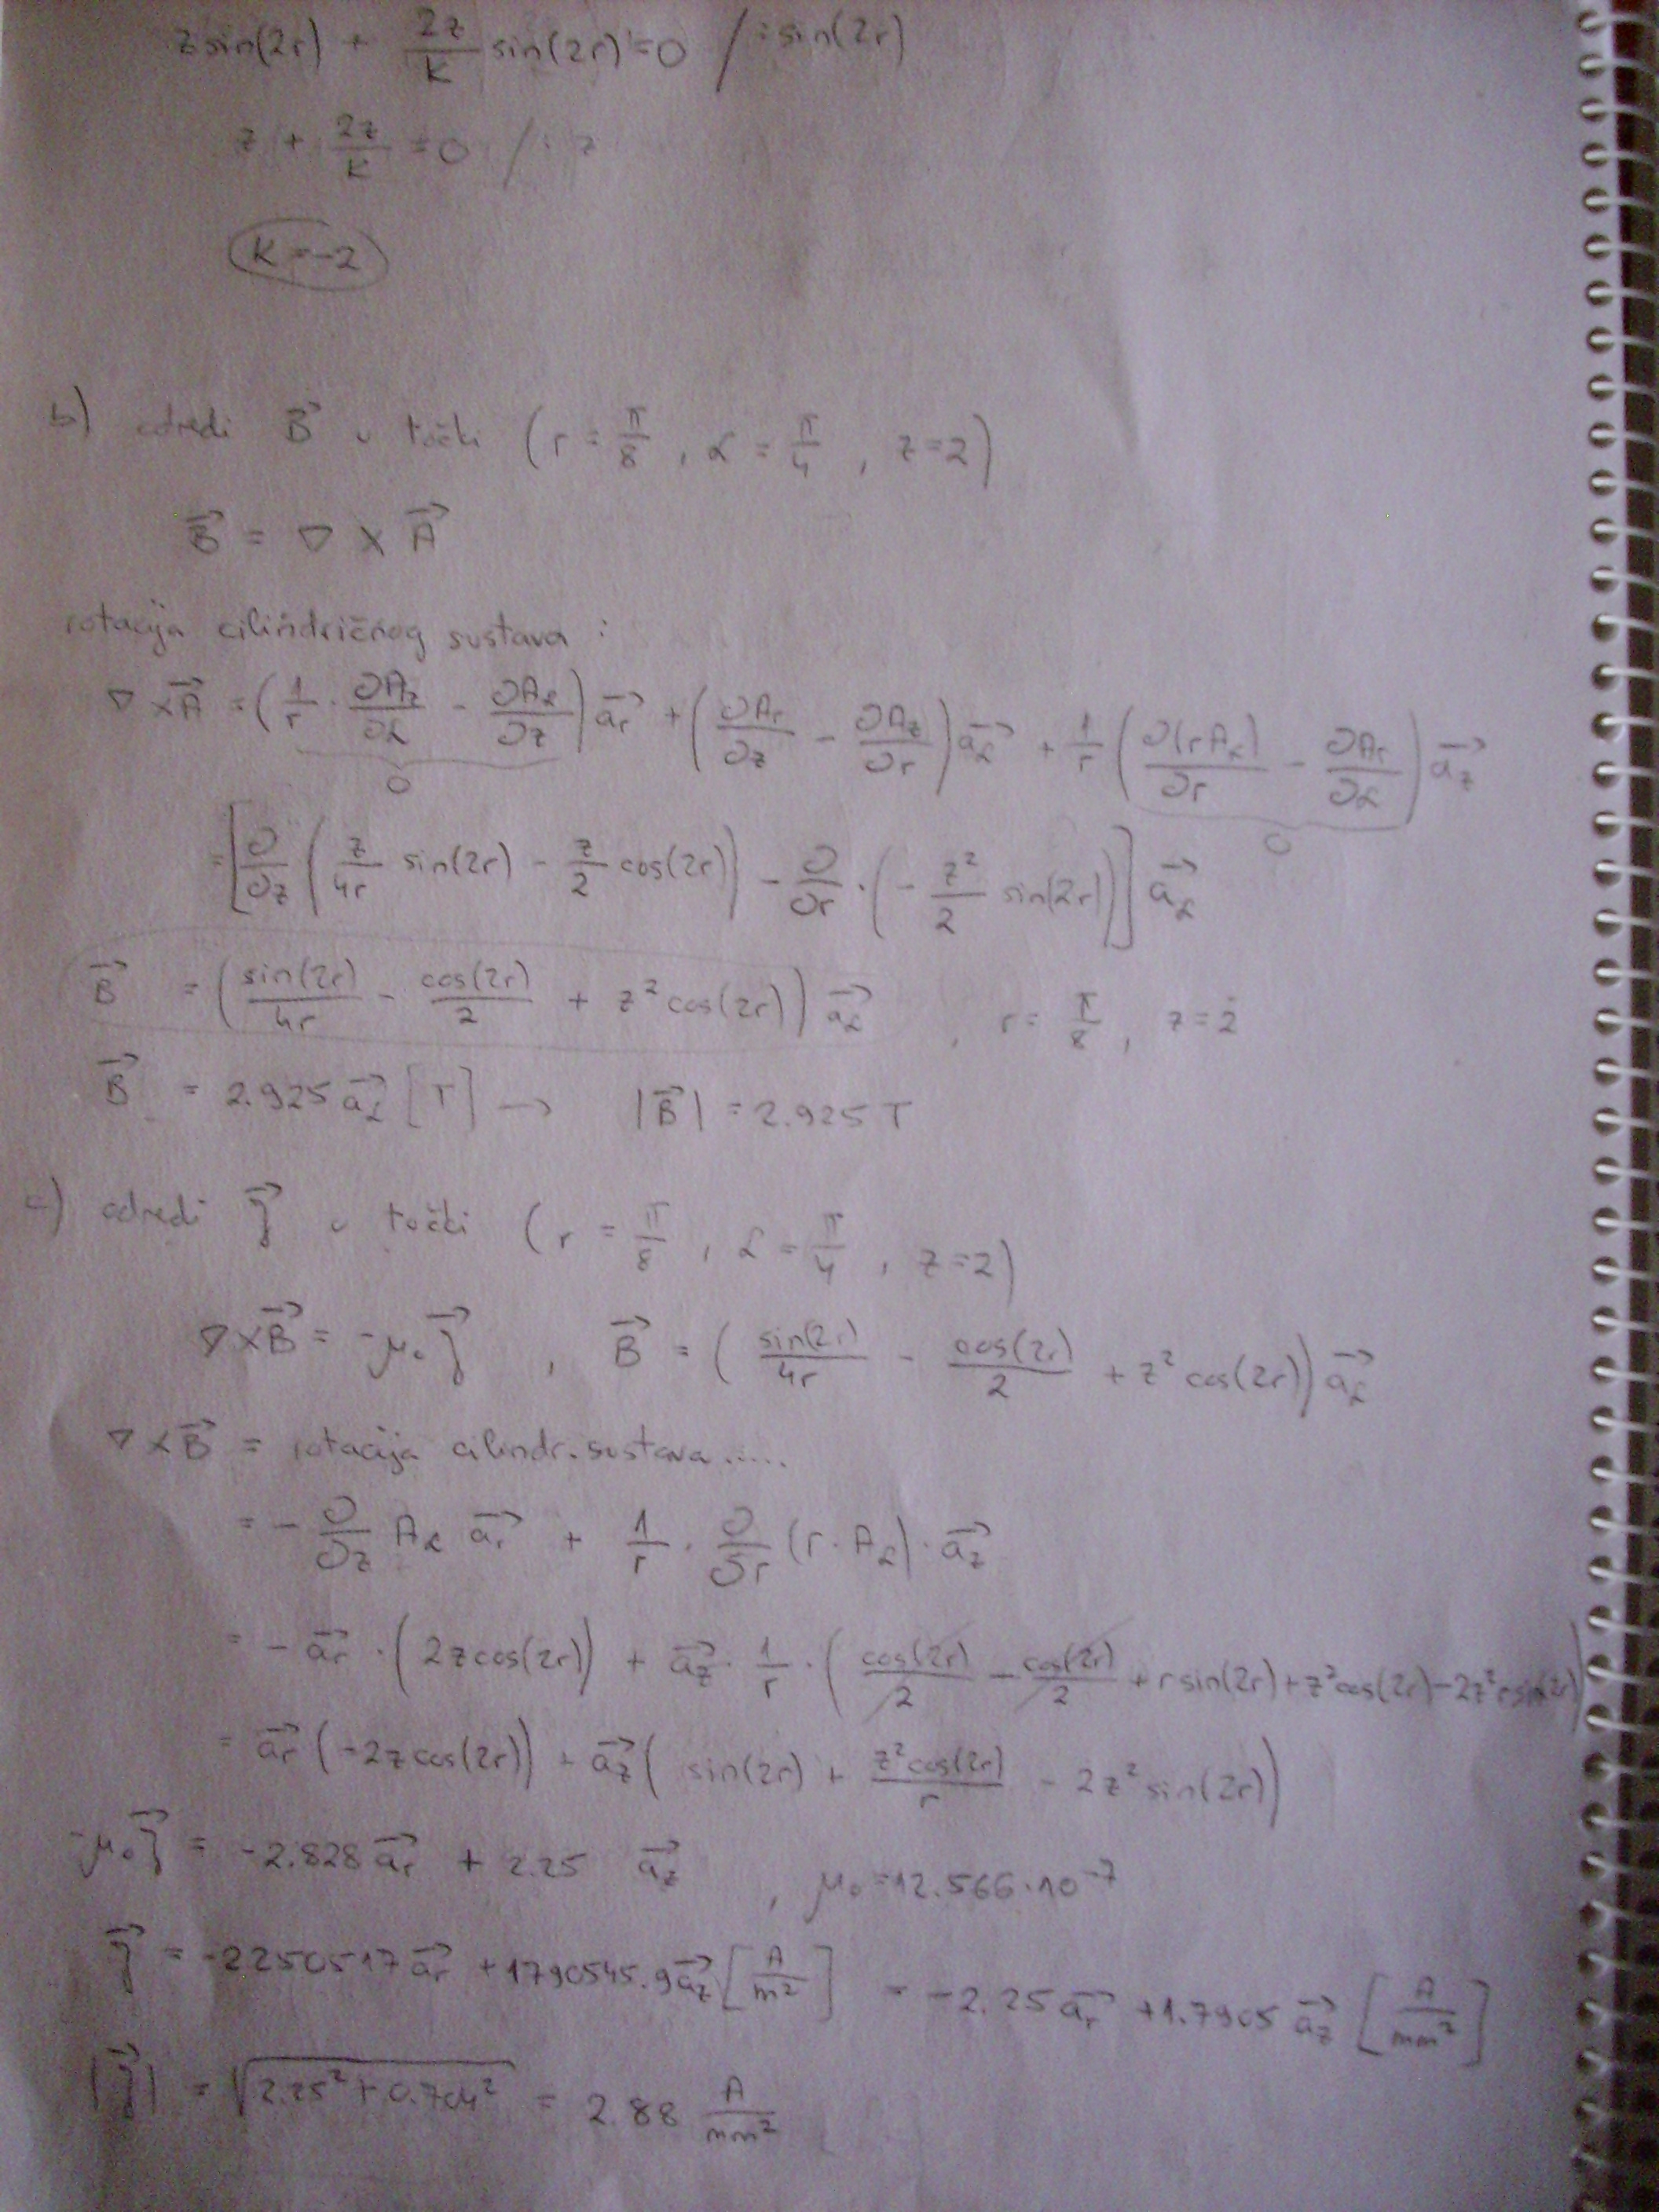 z sin(2r) + 2z/K sin(2r) = 0 / : sin(2r)
z + 2z/K = 0 / : z
K = -2
b) odredi B⃗ u točki (r = π/8, α = π/4, z = 2)
B⃗ = ∇ × A⃗
rotacija cilindričnog sustava :
∇ × A⃗ = (1/r · ∂Az/∂α - ∂Aα/∂z) a⃗r + (∂Ar/∂z - ∂Az/∂r) a⃗α + 1/r (∂(rAα)/∂r - ∂Ar/∂α) a⃗z
0 0
= [∂/∂z (z/4r sin(2r) - z/2 cos(2r)) - ∂/∂r · (- z²/2 sin(2r))] a⃗α
B⃗ = (sin(2r)/4r - cos(2r)/2 + z² cos(2r)) a⃗α , r = π/8 , z = 2
B⃗ = 2.925 a⃗α [T] → |B⃗| = 2.925 T
c) odredi J⃗ u točki (r = π/8 , α = π/4 , z = 2)
∇ × B⃗ = -μ₀ J⃗ , B⃗ = (sin(2r)/4r - cos(2r)/2 + z² cos(2r)) a⃗α
∇ × B⃗ = rotacija cilindr. sustava .....
= - ∂/∂z Aα a⃗r + 1/r · ∂/∂r (r · Aα) · a⃗z
= - a⃗r · (2z cos(2r)) + a⃗z · 1/r · (cos(2r)/2 - cos(2r)/2 + r sin(2r) + z² cos(2r) - 2z² r sin(2r))
= a⃗r (-2z cos(2r)) + a⃗z (sin(2r) + z² cos(2r)/r - 2z² sin(2r))
-μ₀ J⃗ = -2.828 a⃗r + 2.25 a⃗z , μ₀ = 12.566 · 10⁻⁷
J⃗ = -2250517 a⃗r + 1790545.9 a⃗z [A/m²] = -2.25 a⃗r + 1.7905 a⃗z [A/mm²]
|J⃗| = √(2.25² + 0.704²) = 2.88 A/mm²